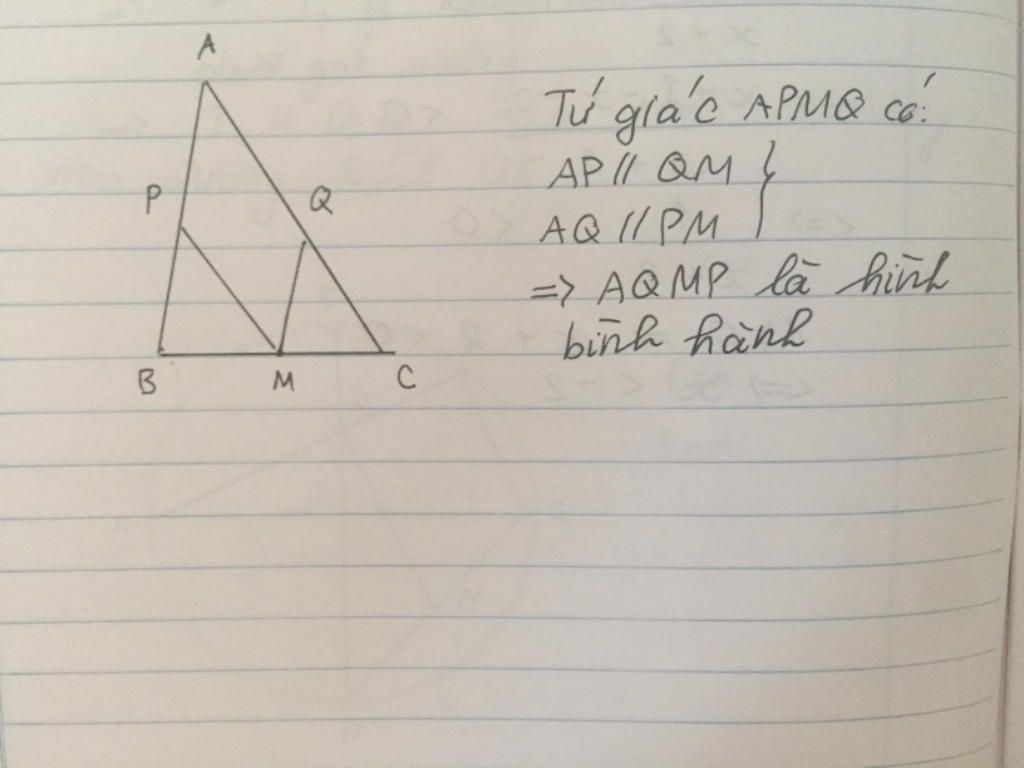 A
P
Q
B
M
C
Tứ giác APMQ có:
AP // QM }
AQ // PM
=> AQMP là hình
bình hành